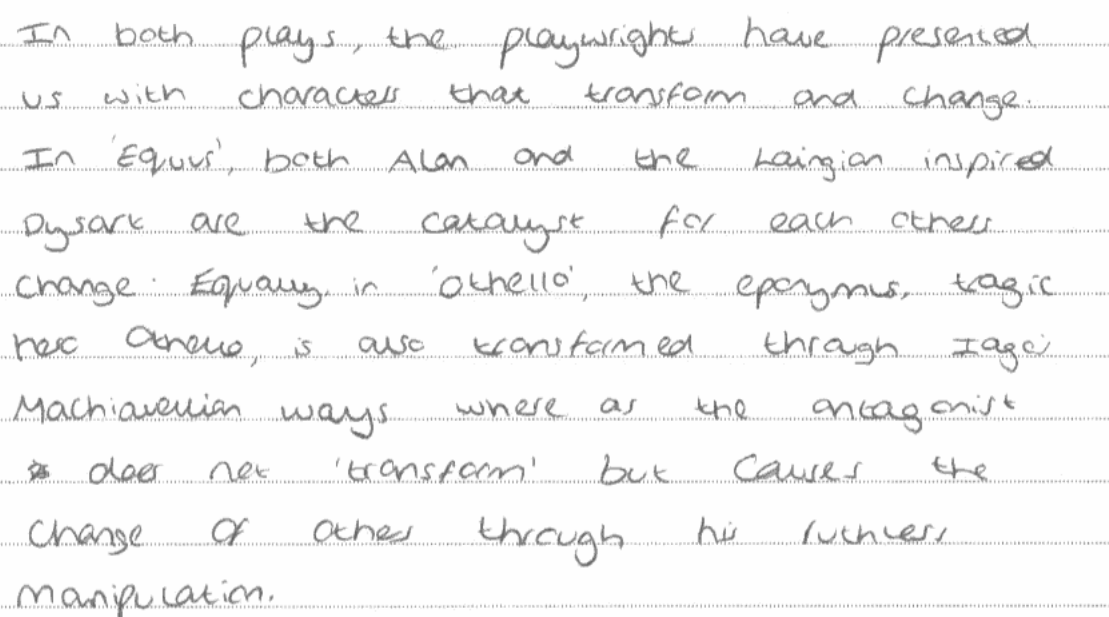 In both plays, the playwrights have presented
us with characters that transform and change.
In 'Equus', both Alan and the Laingian inspired
Dysart are the catalyst for each others
change. Equally, in 'Othello', the eponymus, tragic
hero Othello, is also transformed through Iago'
Machiavellian ways where as the antagonist
does not 'transform' but causes the
change of others through his ruthless
manipulation.